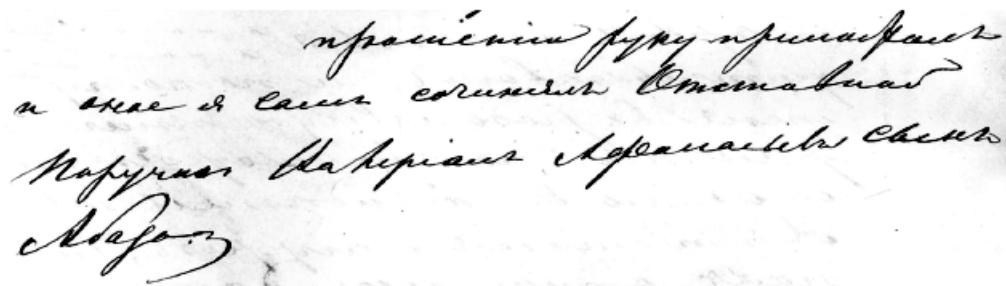 прошенію руку приложилъ
и оное я самъ сочинялъ Отставной
Поручикъ Валеріанъ Афанасьевъ сынъ
Абаза